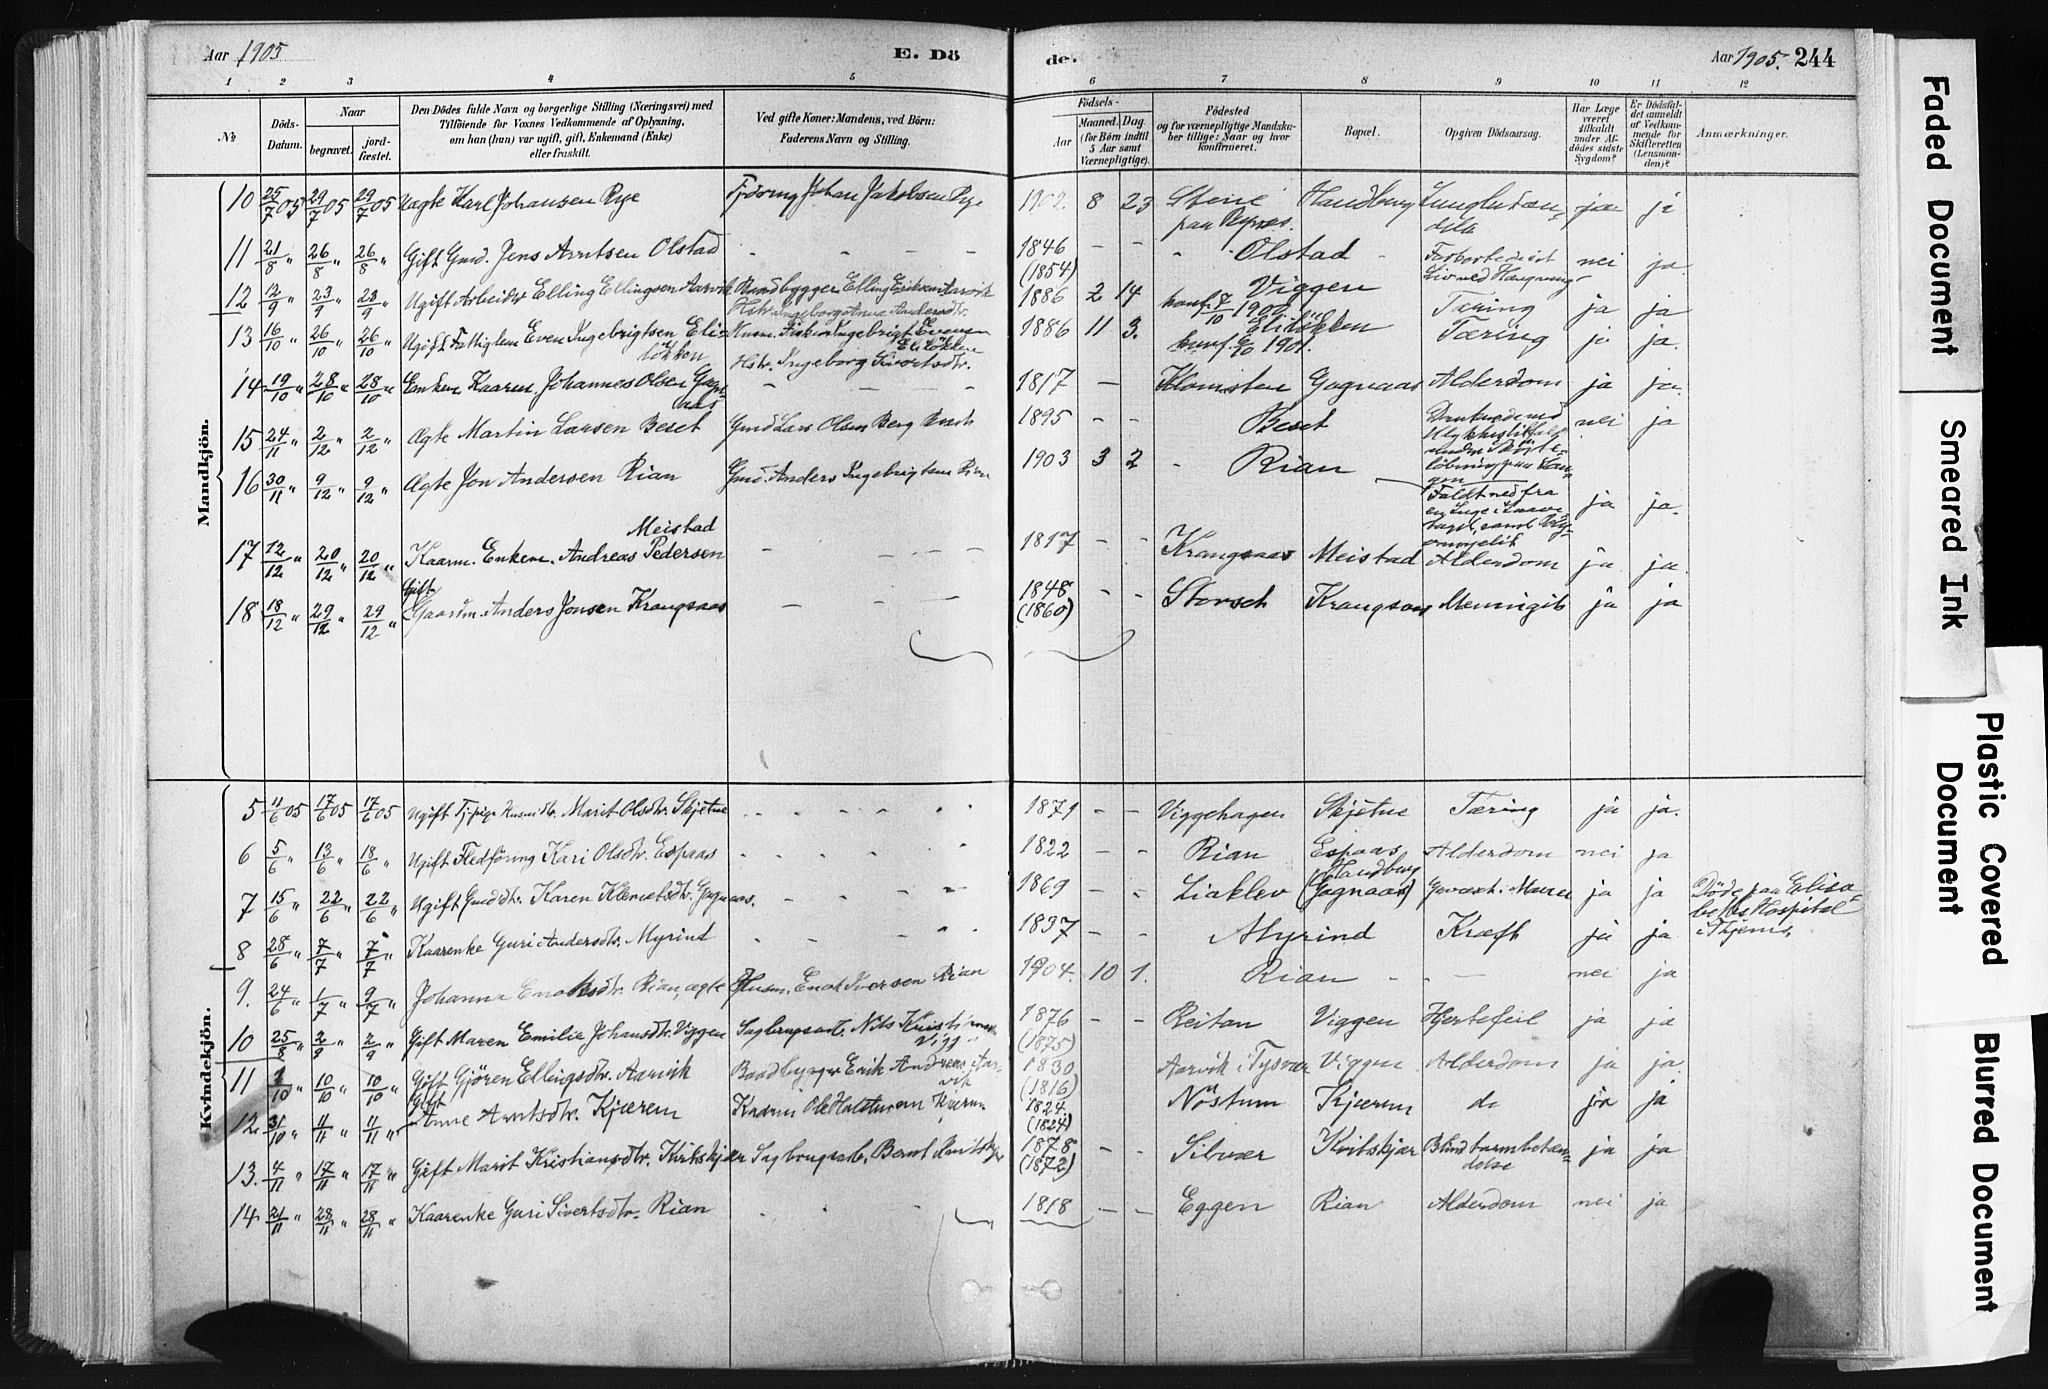 Aar 1905
E. Dö
de.
Aar 1905. 244
1 2 3 4 5 6 7 8 9 10 11 12
No
Döds-Datum.
Naar
begravet. jordfæstet.
Den Dödes fulde Navn og borgerlige Stilling (Næringsvei) med
Tilföiende for Voxnes Vedkommende af Oplysning,
om han (hun) var ugift, gift, Enkemand (Enke)
eller fraskilt.
Ved gifte Koner: Mandens, ved Börn:
Faderens Navn og Stilling.
Födsels-
Aar
Maaned. Dag.
(for Börn indtil
5 Aar samt
Værnepligtige).
Födested
og for værnepligtige Mandska-
ber tillige: Naar og hvor
konfirmeret.
Bopæl.
Opgiven Dödsaarsag.
Har Læge
været
tilkaldt
under Af-
dödes sidste
Sygdom?
Er Dödsfal-
det anmeldt
af Vedkom-
mende for
Skifteretten
(Lensman-
den)?
Anmærkninger.
Mandkjön.
10 25/7 05 29/7 05 29/7 05 Uægte Karl Johansen Rye Johan Jakobsen Rye 1902. 8 23 Handberg ja ja
11 21/8 " 26/8 " 26/8 " Gift Gmd. Jens Arntsen Olstad – – – 1846 (1854) – – Olstad nei ja
12 12/9 " 23/9 " 23/9 " Ugift Arbeider Elling Ellingsen Aarvik Baadbygger Elling Eriksen Aarvik 1886 2 14 Viggen Tæring ja ja
Hstr. Ingeborg Anna Andersdtr. konf. 7/10 1900
13 16/10 " 26/10 " 26/10 " Ugift Fattiglem Even Ingebrigtsen Eli- Husm. Fisker Ingebrigt Evensen 1886 11 3. Eliløkken Tæring ja ja.
løkken Eliløkken konf. 1901.
Hstr. Ingeborg Sivertsdtr.
14 19/10 " 28/10 " 28/10 " Enkem. Kaarm. Johannes Olsen Gagn- – – – 1817 – Klomsten Gagnaas Alderdom ja ja.
aas
15 24/11 " 2/12 " 2/12 " Ægte Martin Larsen Beset Gmd Lars Olsen Berg 1895 – – Beset Druknede ved nei ja
Ulykkestilfælde
under Skøite-
løbning paa
16 30/11 " 9/12 " 9/12 " Ægte Jon Andersen Rian Gmd. Anders Ingebrigtsen Rian 1903 3 2 Rian Faldt ned fra ja ja.
17 12/12 " 20/12 " 20/12 " Kaarm. Enkem. Andreas Pedersen Meistad – – – 1817 – – Krangsaas Meistad Alderdom ja ja.
18 18/12 " 29/12 " 29/12 " Gift Gaardm. Anders Jonsen Krangsaas – – – 1848 (1860) – – Krangsaas ja ja
Kvindekjön.
5 11/6 05 17/6 05 17/6 05 Ugift Marit Olsdtr. Skjetne 1871 – – Viggehagen Skjetne Tæring ja ja.
6 5/6 " 13/6 " 18/6 " Ugift Fledføring Kari Olsdtr. Espaas 1822 – – Rian Espaas Alderdom nei ja
7 15/6 " 22/6 " 22/6 " Ugift Gmddtr. Karen Klemetsdtr. Gagnaas. 1869 – – Liaklev Handberg (Gagnaas) ja ja Døde paa Elisa-
beths Hospital
i Thjem.
8 28/6 " 7/7 " 7/7 " Kaarenke Guri Andersdtr. Myrind 1837 – – Myrind Kræft ja ja
9. 24/6 " 1/7 " 9/7 " Johanna Enoksdtr. Rian, ægte Husm. Enok Iversen Rian 1904. 10 1. Rian – nei ja
10 25/8 " 2/9 " 2/9 " Gift Maren Emilie Johansdtr. Viggen Sagbrugsarb. Nils 1876 (1875) – – Reitan Viggen Hjertefeil ja ja
11 1/10 " 10/10 " 10/10 " Gift Gjøren Ellingsdtr. Aarvik Baadbygger Erik Andreas. Aar- 1830 (1816) Aarvik i Tysvær Viggen Alderdom ja ja.
vik
12. 31/10 " 11/11 " 11/11 " Gift Anne Arntsdtr. Kjærem 1824. (1824) Nøstum Kjærem do ja ja
13. 4/11 " 17/11 " 17/11 " Gift Marit Kristiansdtr. Kvitskjær Sagbrugsarb. Bernt Kvitskjær 1878 (1872) – – Kvitskjær Blindtarmbetæn- ja ja
delse
14 21/11 " 28/11 " 28/11 " Kaarenke Guri Sivertsdtr. Rian 1818 – – Eggen Rian Alderdom nei ja
Faded Document
Smeared Ink
Plastic Covered
Document
Blurred Document